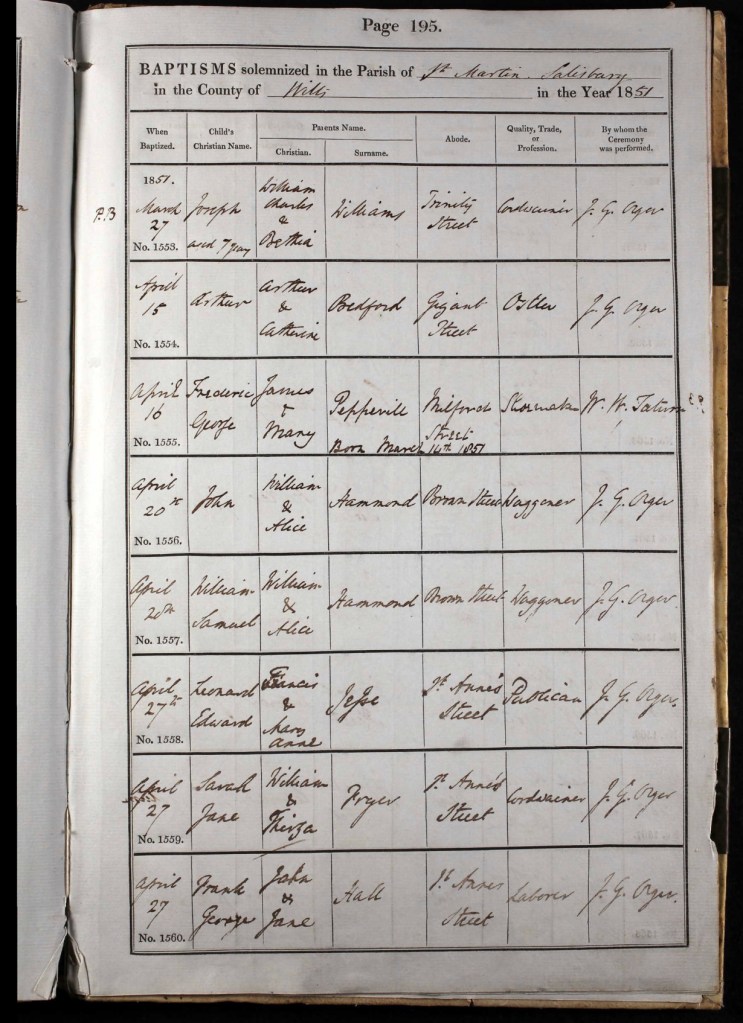 Page 195.
BAPTISMS solemnized in the Parish of St Martin Salisbury
in the County of Wilts in the Year 1851
When Baptized.
Child's Christian Name.
Parents Name.
Christian.
Surname.
Abode.
Quality, Trade, or Profession.
By whom the Ceremony was performed.
P.B
1851.
March
27
No. 1553.
Joseph
aged 7 years
William
Charles
&
Bethia
Williams
Trinity
Street
Cordwainer
J. G. Orger
April
15
No. 1554.
Arthur
Arthur
&
Catherine
Bedford
Gigant
Street
Ostler
J. G. Orger
April
16
No. 1555.
Frederic
George
James
&
Mary
Peppevill
Born March 14th 1851
Milford
Street
Shoemaker
W. W. Tatum
April
20th
No. 1556.
John
William
&
Alice
Hammond
Brown Street
Waggoner
J. G. Orger
April
20th
No. 1557.
William
Samuel
William
&
Alice
Hammond
Brown Street
Waggoner
J. G. Orger.
April
27th
No. 1558.
Leonard
Edward
Francis
&
Mary
Anne
Jesse
St Anne's
Street
Publican
J. G. Orger.
April
27
No. 1559.
Sarah
Jane
William
&
Thirza
Fryer
St Anne's
Street
Cordwainer
J. G. Orger
April
27
No. 1560.
Frank
George
John
&
Jane
Hall
St Annes
Street
Laborer
J. G. Orger.